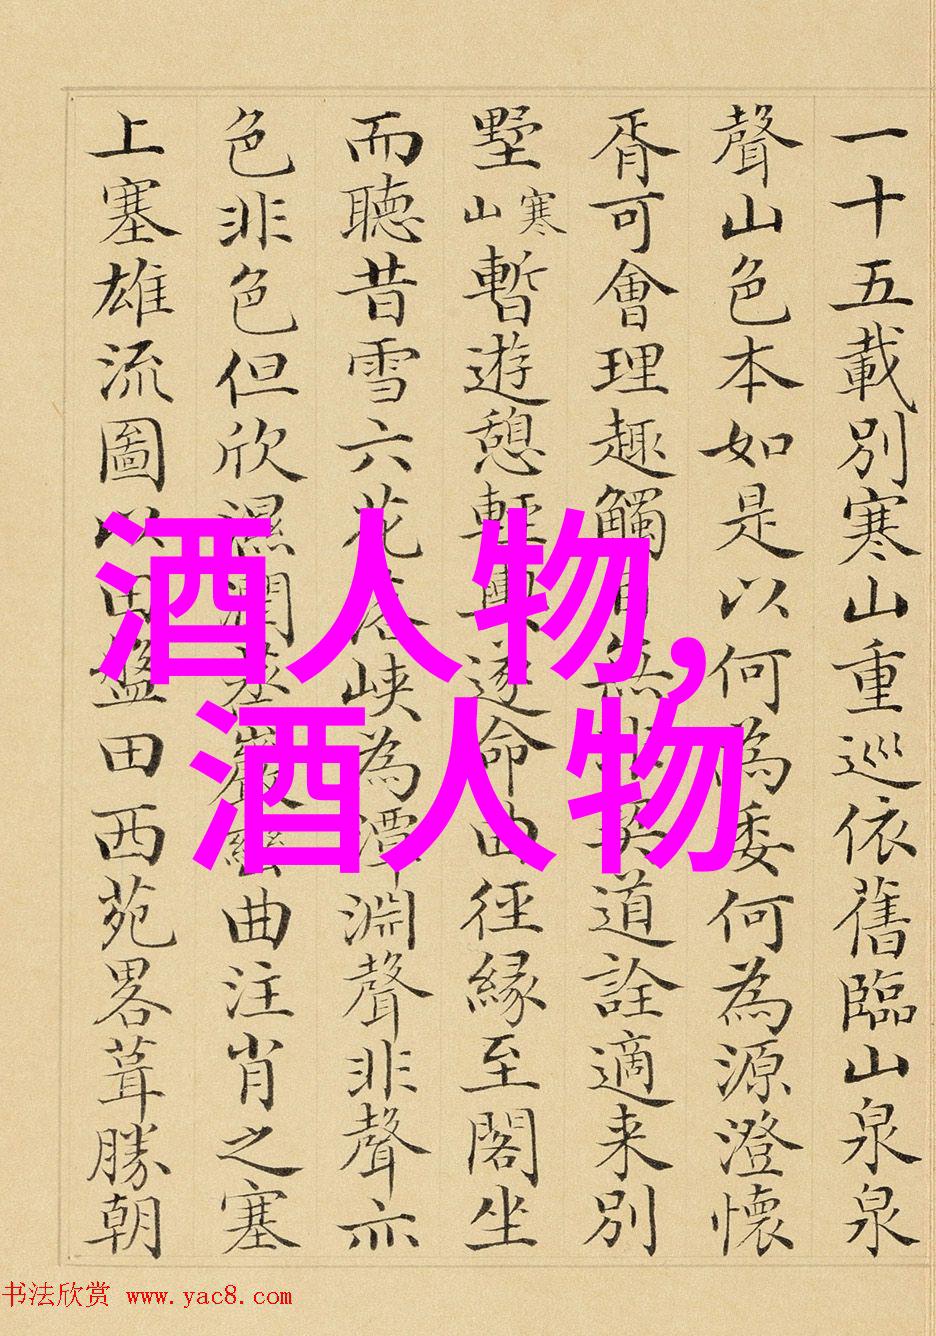 一十五載別寒山重巡依舊臨山泉泉
聲山色本如是以何為委何為源澄懷
胥可會理趣觸目無非契道詮適来別
墅寒山暫遊憩輕輿遂命由徑緣至閣坐
而聽昔雪六花落峡為潭淵聲非聲亦
色非色但欣濕潤蒸巖巒曲注肖之塞
上塞雄流圖以田盤田西苑畧葺勝朝
酒人物,
酒人物
书法欣赏 www.yac8.com